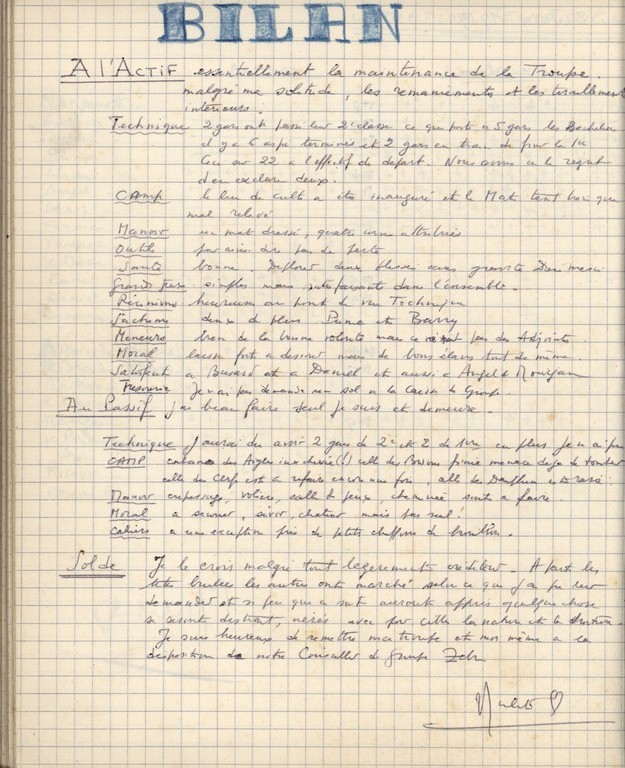 BILAN
A l'ACTIF essentiellement la maintenance de la Troupe.
malgré ma solitude, les remaniements et les tiraillements
intérieurs.
Technique 2 gars ont passé leur 2e classe ce qui porte a 5 gars les
il y a 6 asp terminés et 2 gars en train de finir la 1e
Ceci sur 22 a l'effectif de départ. Nous avons eu le regret
d'en exclure deux.
CAMP le lieu de culte a été inauguré et le Mat tant bien que
mal relevé
Manoir un mat dressé, quatre attribués
Outils pour ainsi dire pas de perte
Santé bonne. deux blessés sans gravité Dieu merci
Grands Jeux simples mais satisfaisants dans l'ensemble.
Réunions heureuses au point de vue Technique
deux de plus Puma et Barry
Meneurs bien de la bonne volonté mais ce ne sont pas des Adjoints.
Moral laisse fort a désirer mais de bons élans tout de même
Satisfecit a Busard et a Daniel et aussi a
Trésorerie Je n'ai pas demandé un sol a la Caisse de Groupe.
Au Passif j'ai beau faire seul je suis et demeure.
Technique J'aurai du avoir 2 gars de 2e et 2 de 1ere en plus je n'ai pu
CAMP cabane des Aigles inachevée (!) celle des Bisons finie menace deja de tomber
celle des Cerfs est a refaire encore une fois, celle des Dauphins est rasée.
Manoir crépissage, volière, salle de jeux, cheminée sont a faire.
Moral a secouer, sévir, chatier mais pas seul!
Cahiers a une exception près de petits chiffons de brouillon.
Solde Je le crois malgré tout légèrement créditeur. A part les
têtes brulées les autres ont marché selon ce que j'ai pu leur
demander et si peu que ce soit auront appris quelque chose
se seront distrait, aérés avec par celle la nature et la
Je suis heureux de remettre ma troupe et moi même a la
disposition de notre Conseiller de Groupe